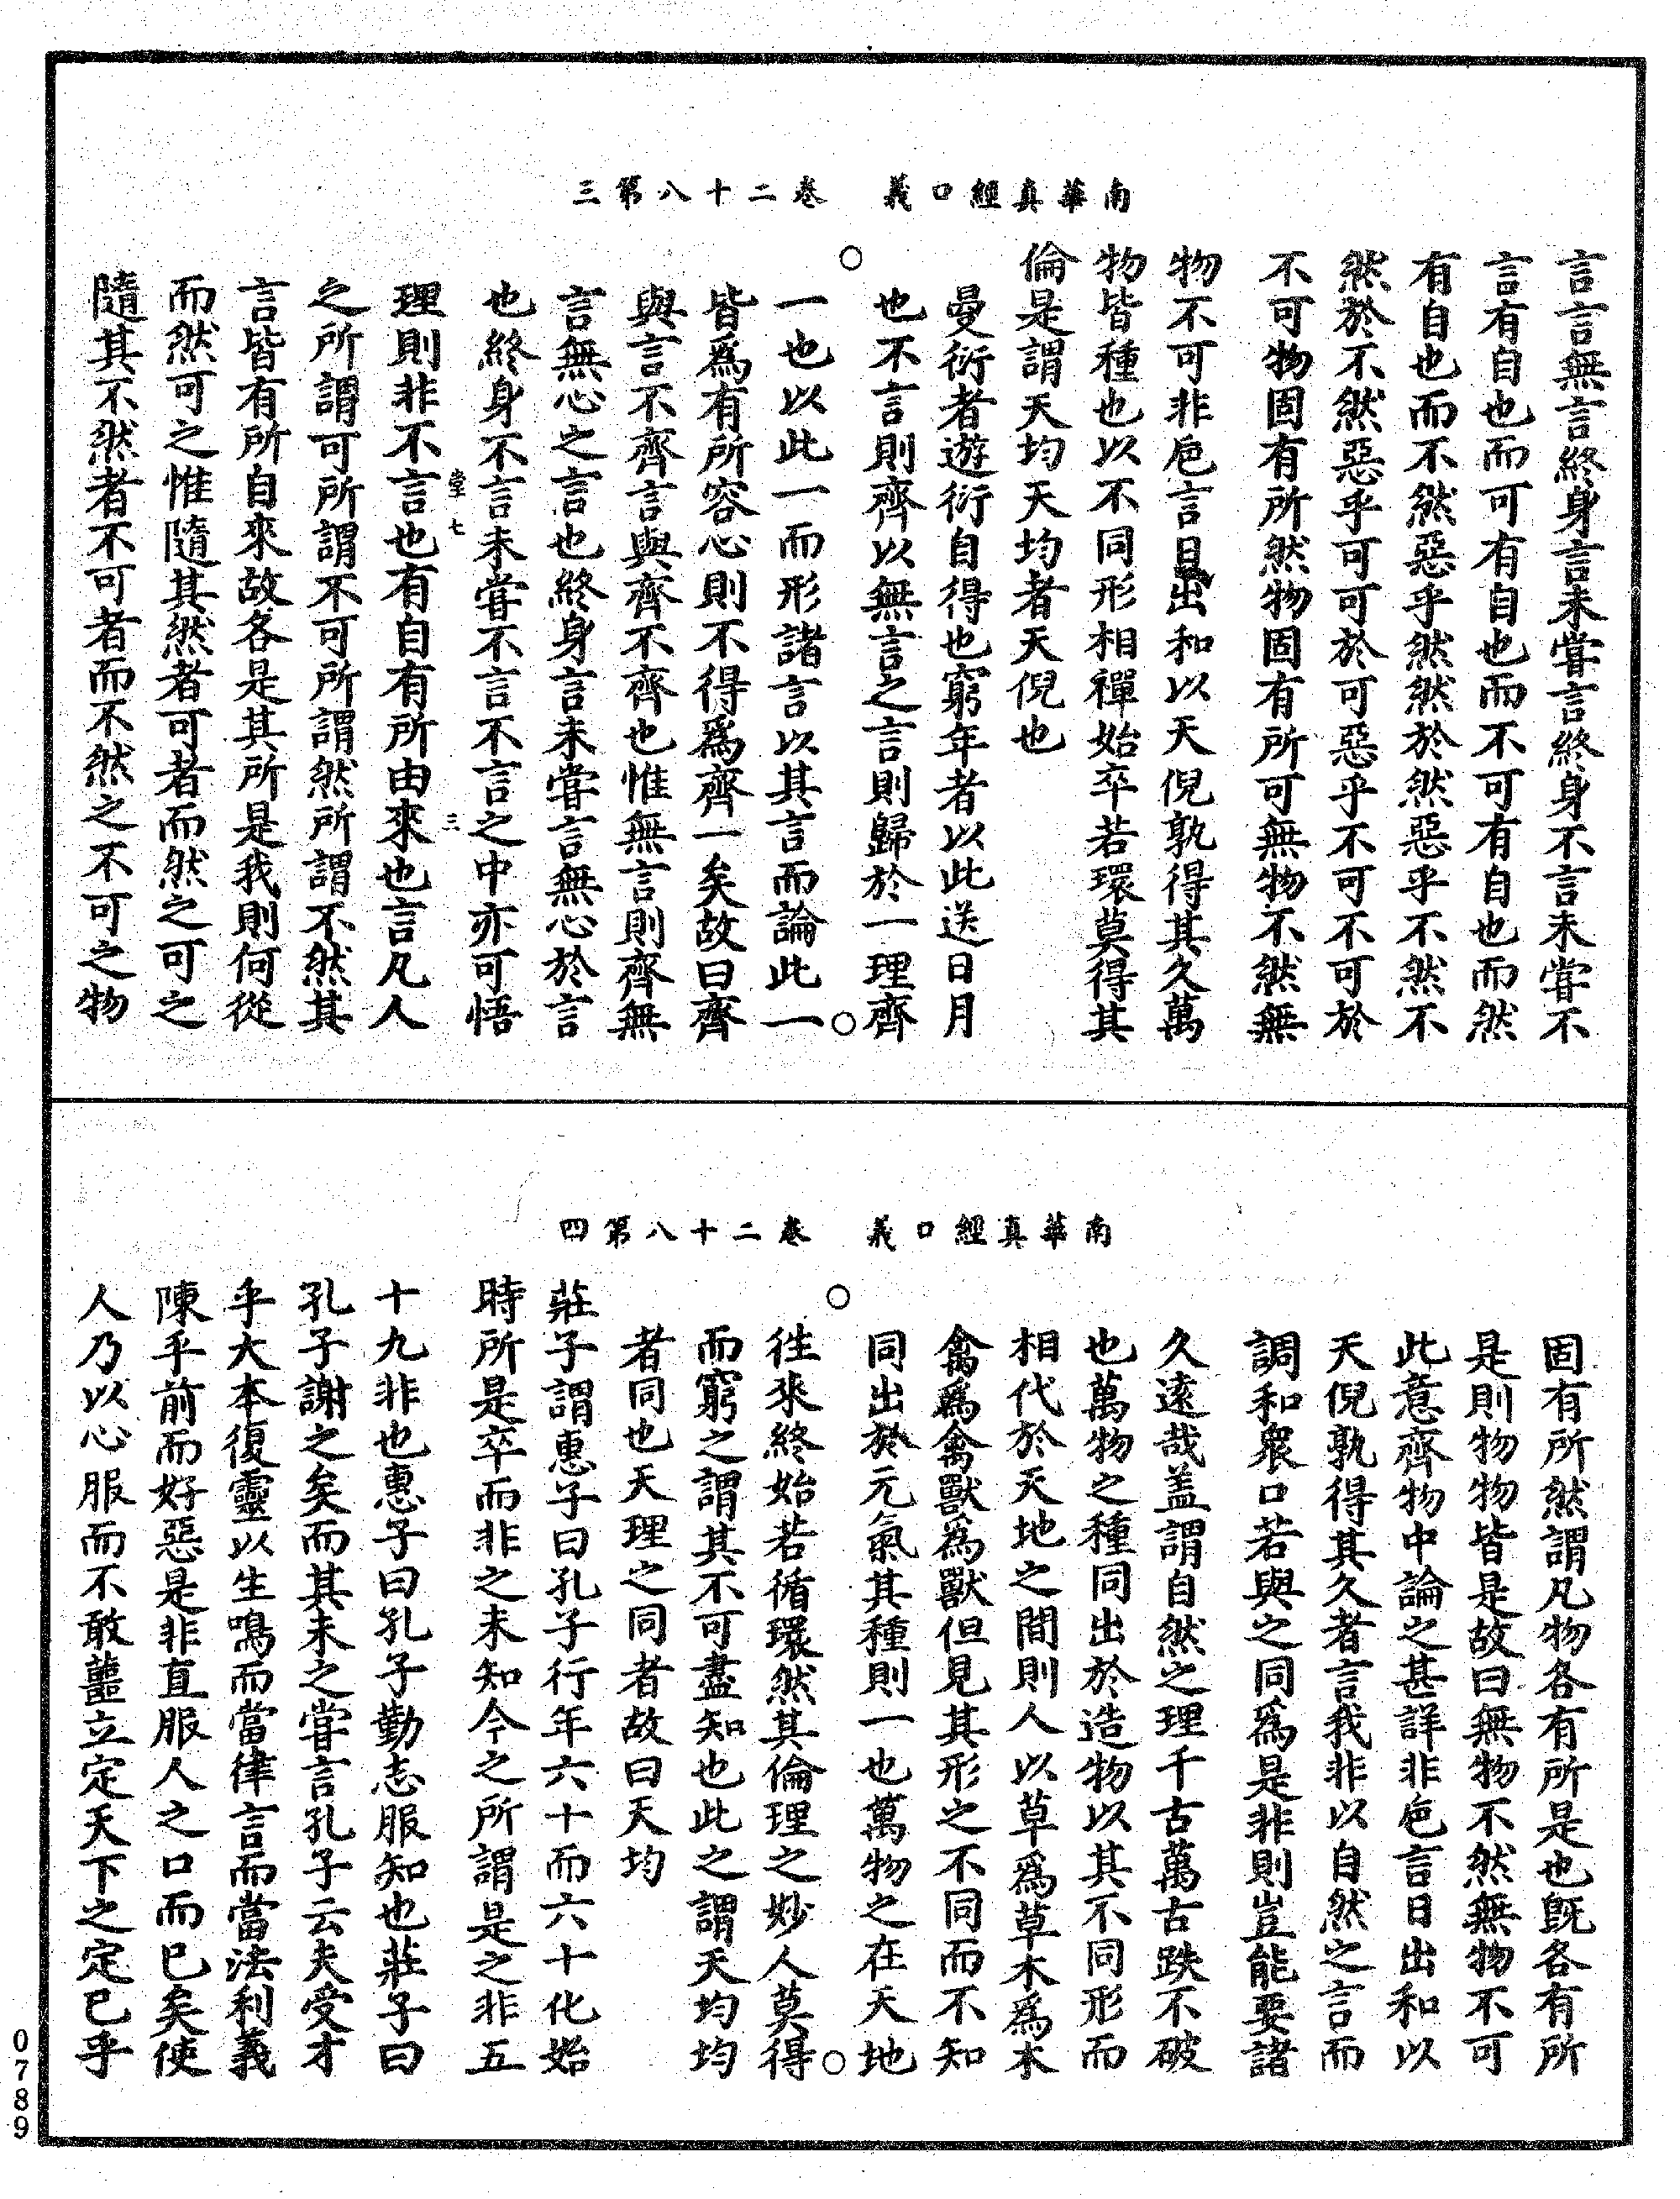 南華真經口義　卷二十八第三
言言無言終身言未嘗言終身不言未嘗不
言有自也而可有自也而不可有自也而然
有自也而不然惡乎然然於然惡乎不然不
然於不然惡乎可可於可惡乎不可不可於
不可物固有所然物固有所可無物不然無
物不可非巵言日出和以天倪孰得其久萬
物皆種也以不同形相禪始卒若環莫得其
倫是謂天均天均者天倪也
曼衍者遊衍自得也窮年者以此送日月
也不言則齊以無言之言則歸於一理齊
一也以此一而形諸言以其言而論此一
皆為有所容心則不得為齊一矣故曰齊
與言不齊言與齊不齊也惟無言則齊無
言無心之言也終身言未嘗言無心於言
也終身不言未嘗不言不言之中亦可悟
堂七　三
理則非不言也有自有所由來也言凡人
之所謂可所謂不可所謂然所謂不然其
言皆有所自來故各是其所是我則何從
而然可之惟隨其然者可者而然之可之
隨其不然者不可者而不然之不可之物
南華真經口義　卷二十八第四
固有所然謂凡物各有所是也旣各有所
是則物物皆是故曰無物不然無物不可
此意齊物中論之甚詳非巵言日出和以
天倪孰得其久者言我非以自然之言而
調和衆口若與之同為是非則豈能要諸
久遠哉盖謂自然之理千古萬古跌不破
也萬物之種同出於造物以其不同形而
相代於天地之間則人以草為草木為木
禽為禽獸為獸但見其形之不同而不知
同出於元氣其種則一也萬物之在天地
徃來終始若循環然其倫理之妙人莫得
而窮之謂其不可盡知也此之謂天均均
者同也天理之同者故曰天均
莊子謂惠子曰孔子行年六十而六十化始
時所是卒而非之未知今之所謂是之非五
十九非也惠子曰孔子勤志服知也莊子曰
孔子謝之矣而其未之嘗言孔子云夫受才
乎大本復靈以生鳴而當律言而當法利義
陳乎前而好惡是非直服人之口而已矣使
人乃以心服而不敢蘁立定天下之定已乎
0789